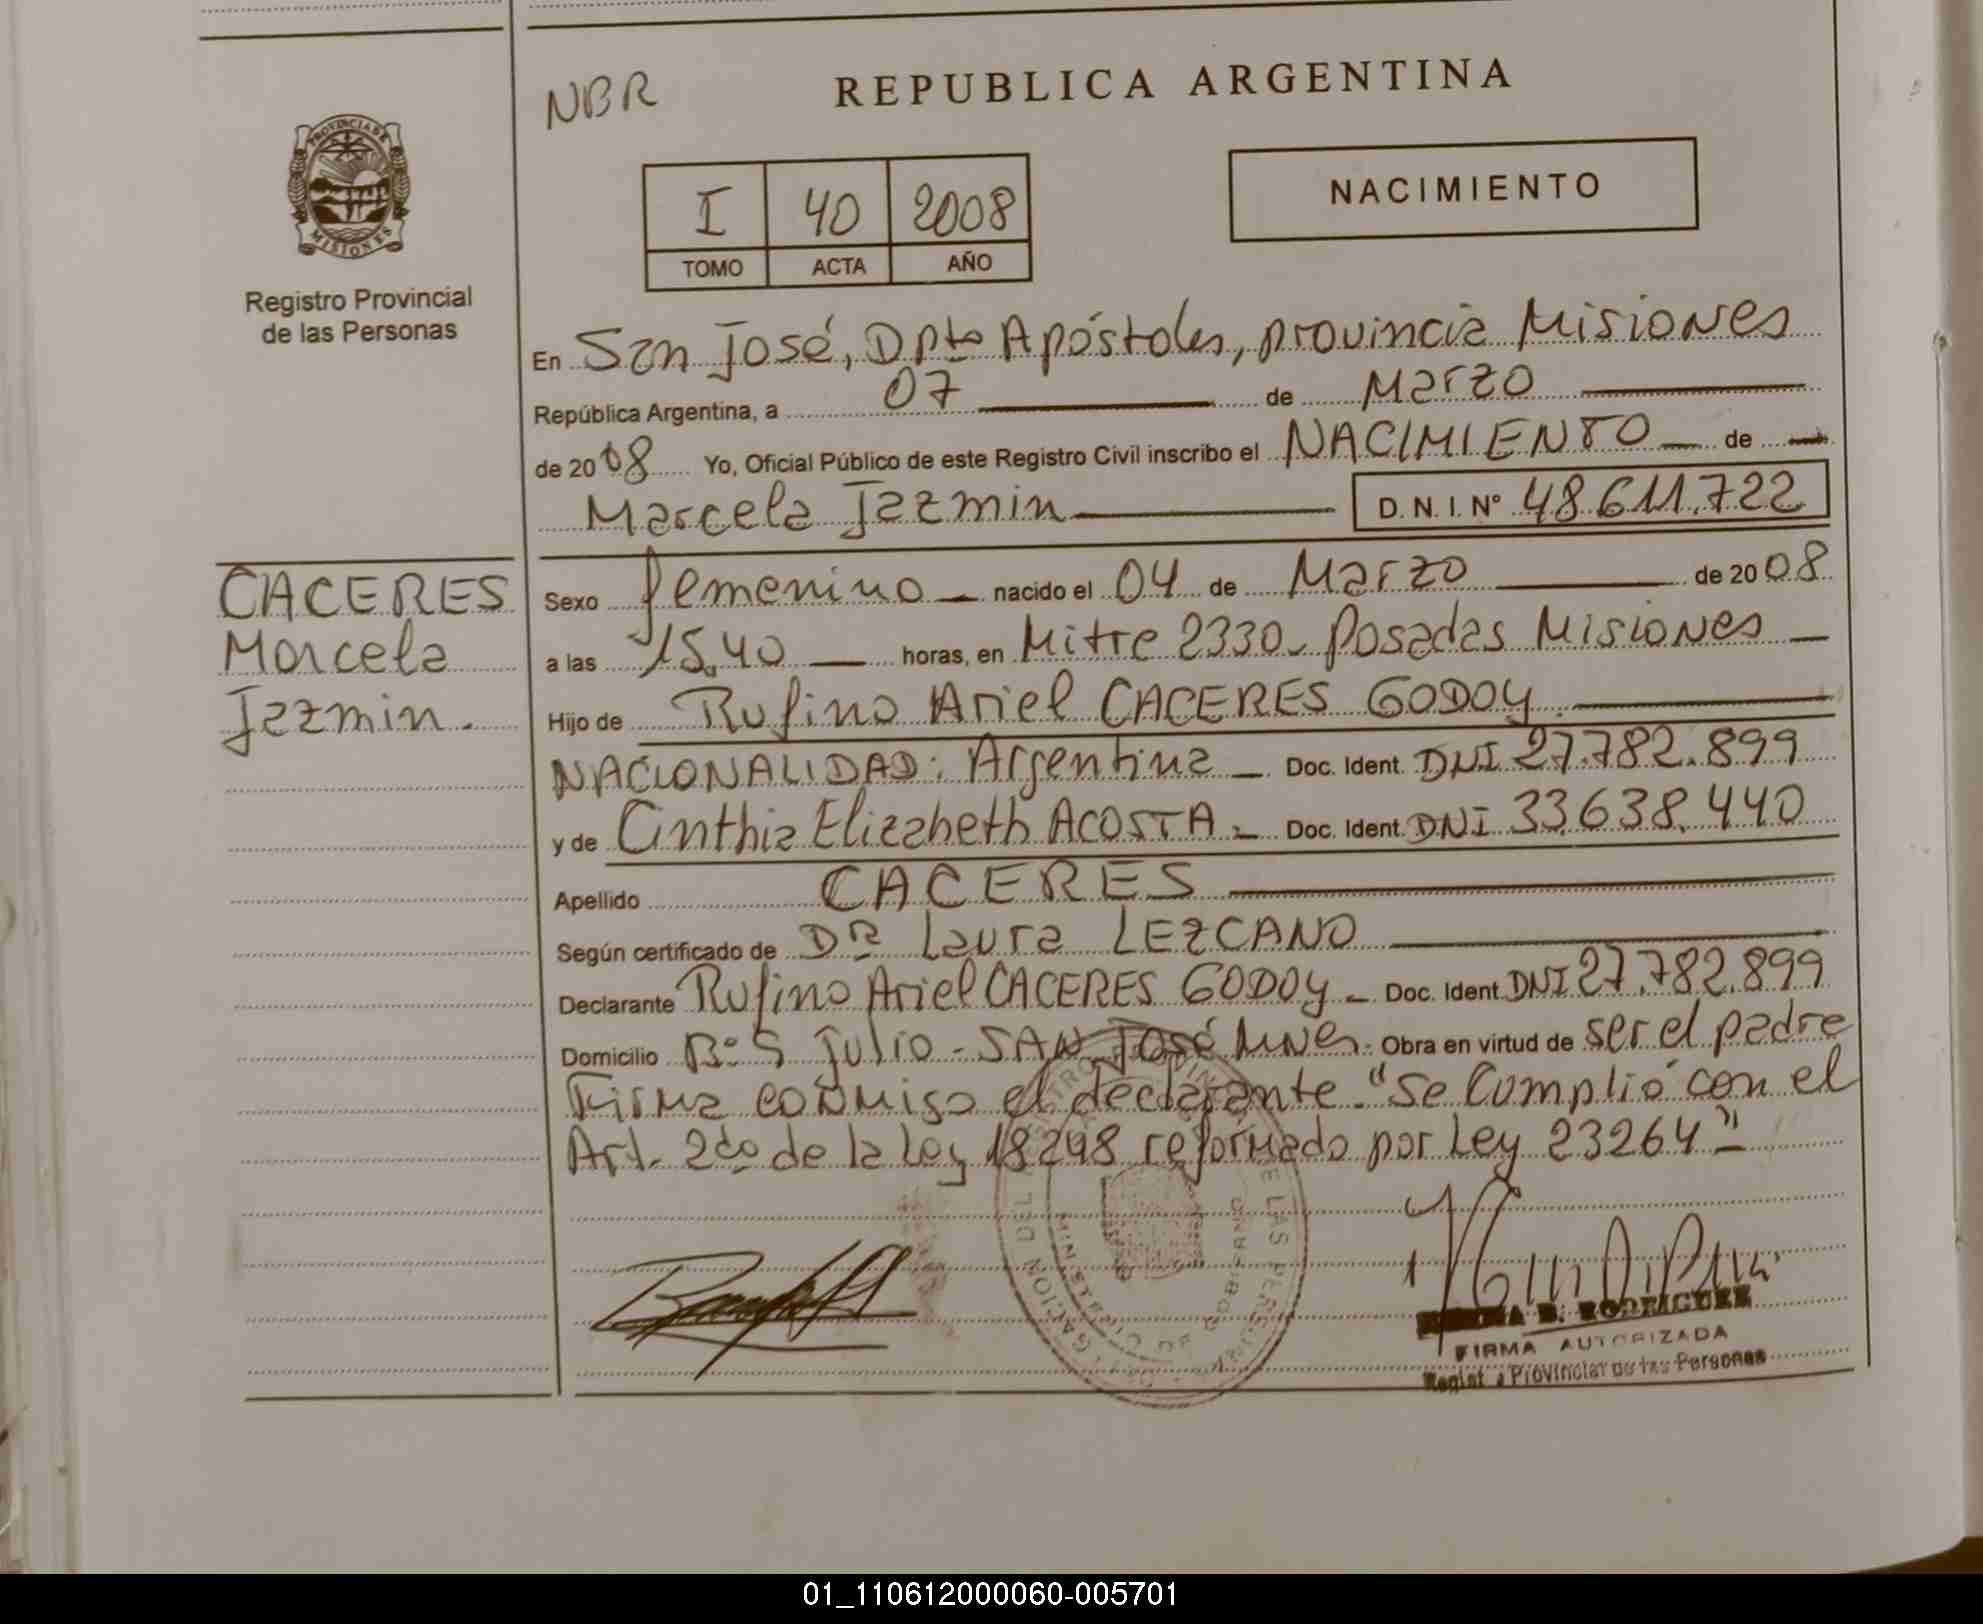 NBR
REPUBLICA ARGENTINA
PROVINCIA DE
MISIONES
Registro Provincial
de las Personas
I 40 2008
TOMO ACTA AÑO
NACIMIENTO
En San José, Dpto Apóstoles, provincia Misiones
República Argentina, a 07 de Marzo
de 2008 Yo, Oficial Público de este Registro Civil inscribo el NACIMIENTO de
Marcela Jazmin D.N.I. Nº 48.611.722
CACERES
Marcela
Jazmin.
Sexo femenino nacido el 04 de Marzo de 2008
a las 15,40 horas, en Mitre 2330 - Posadas Misiones
Hijo de Rufino Ariel CACERES GODOY
NACIONALIDAD: Argentina Doc. Ident. DNI 27.782.899
y de Cinthia Elizabeth ACOSTA Doc. Ident. DNI 33.638.440
Apellido CACERES
Según certificado de DRa Laura LEZCANO
Declarante Rufino Ariel CACERES GODOY Doc. Ident. DNI 27.782.899
Domicilio Bº 5 Julio - SAN José Mnes. Obra en virtud de ser el padre
Firma conmigo el declarante. "Se Cumplió con el
Art. 2do de la Ley 18248 reformado por Ley 23264"
MINISTERIO DE GOBIERNO
D. RODRIGUEZ
FIRMA AUTORIZADA
Provincial de las Personas
01_110612000060-005701